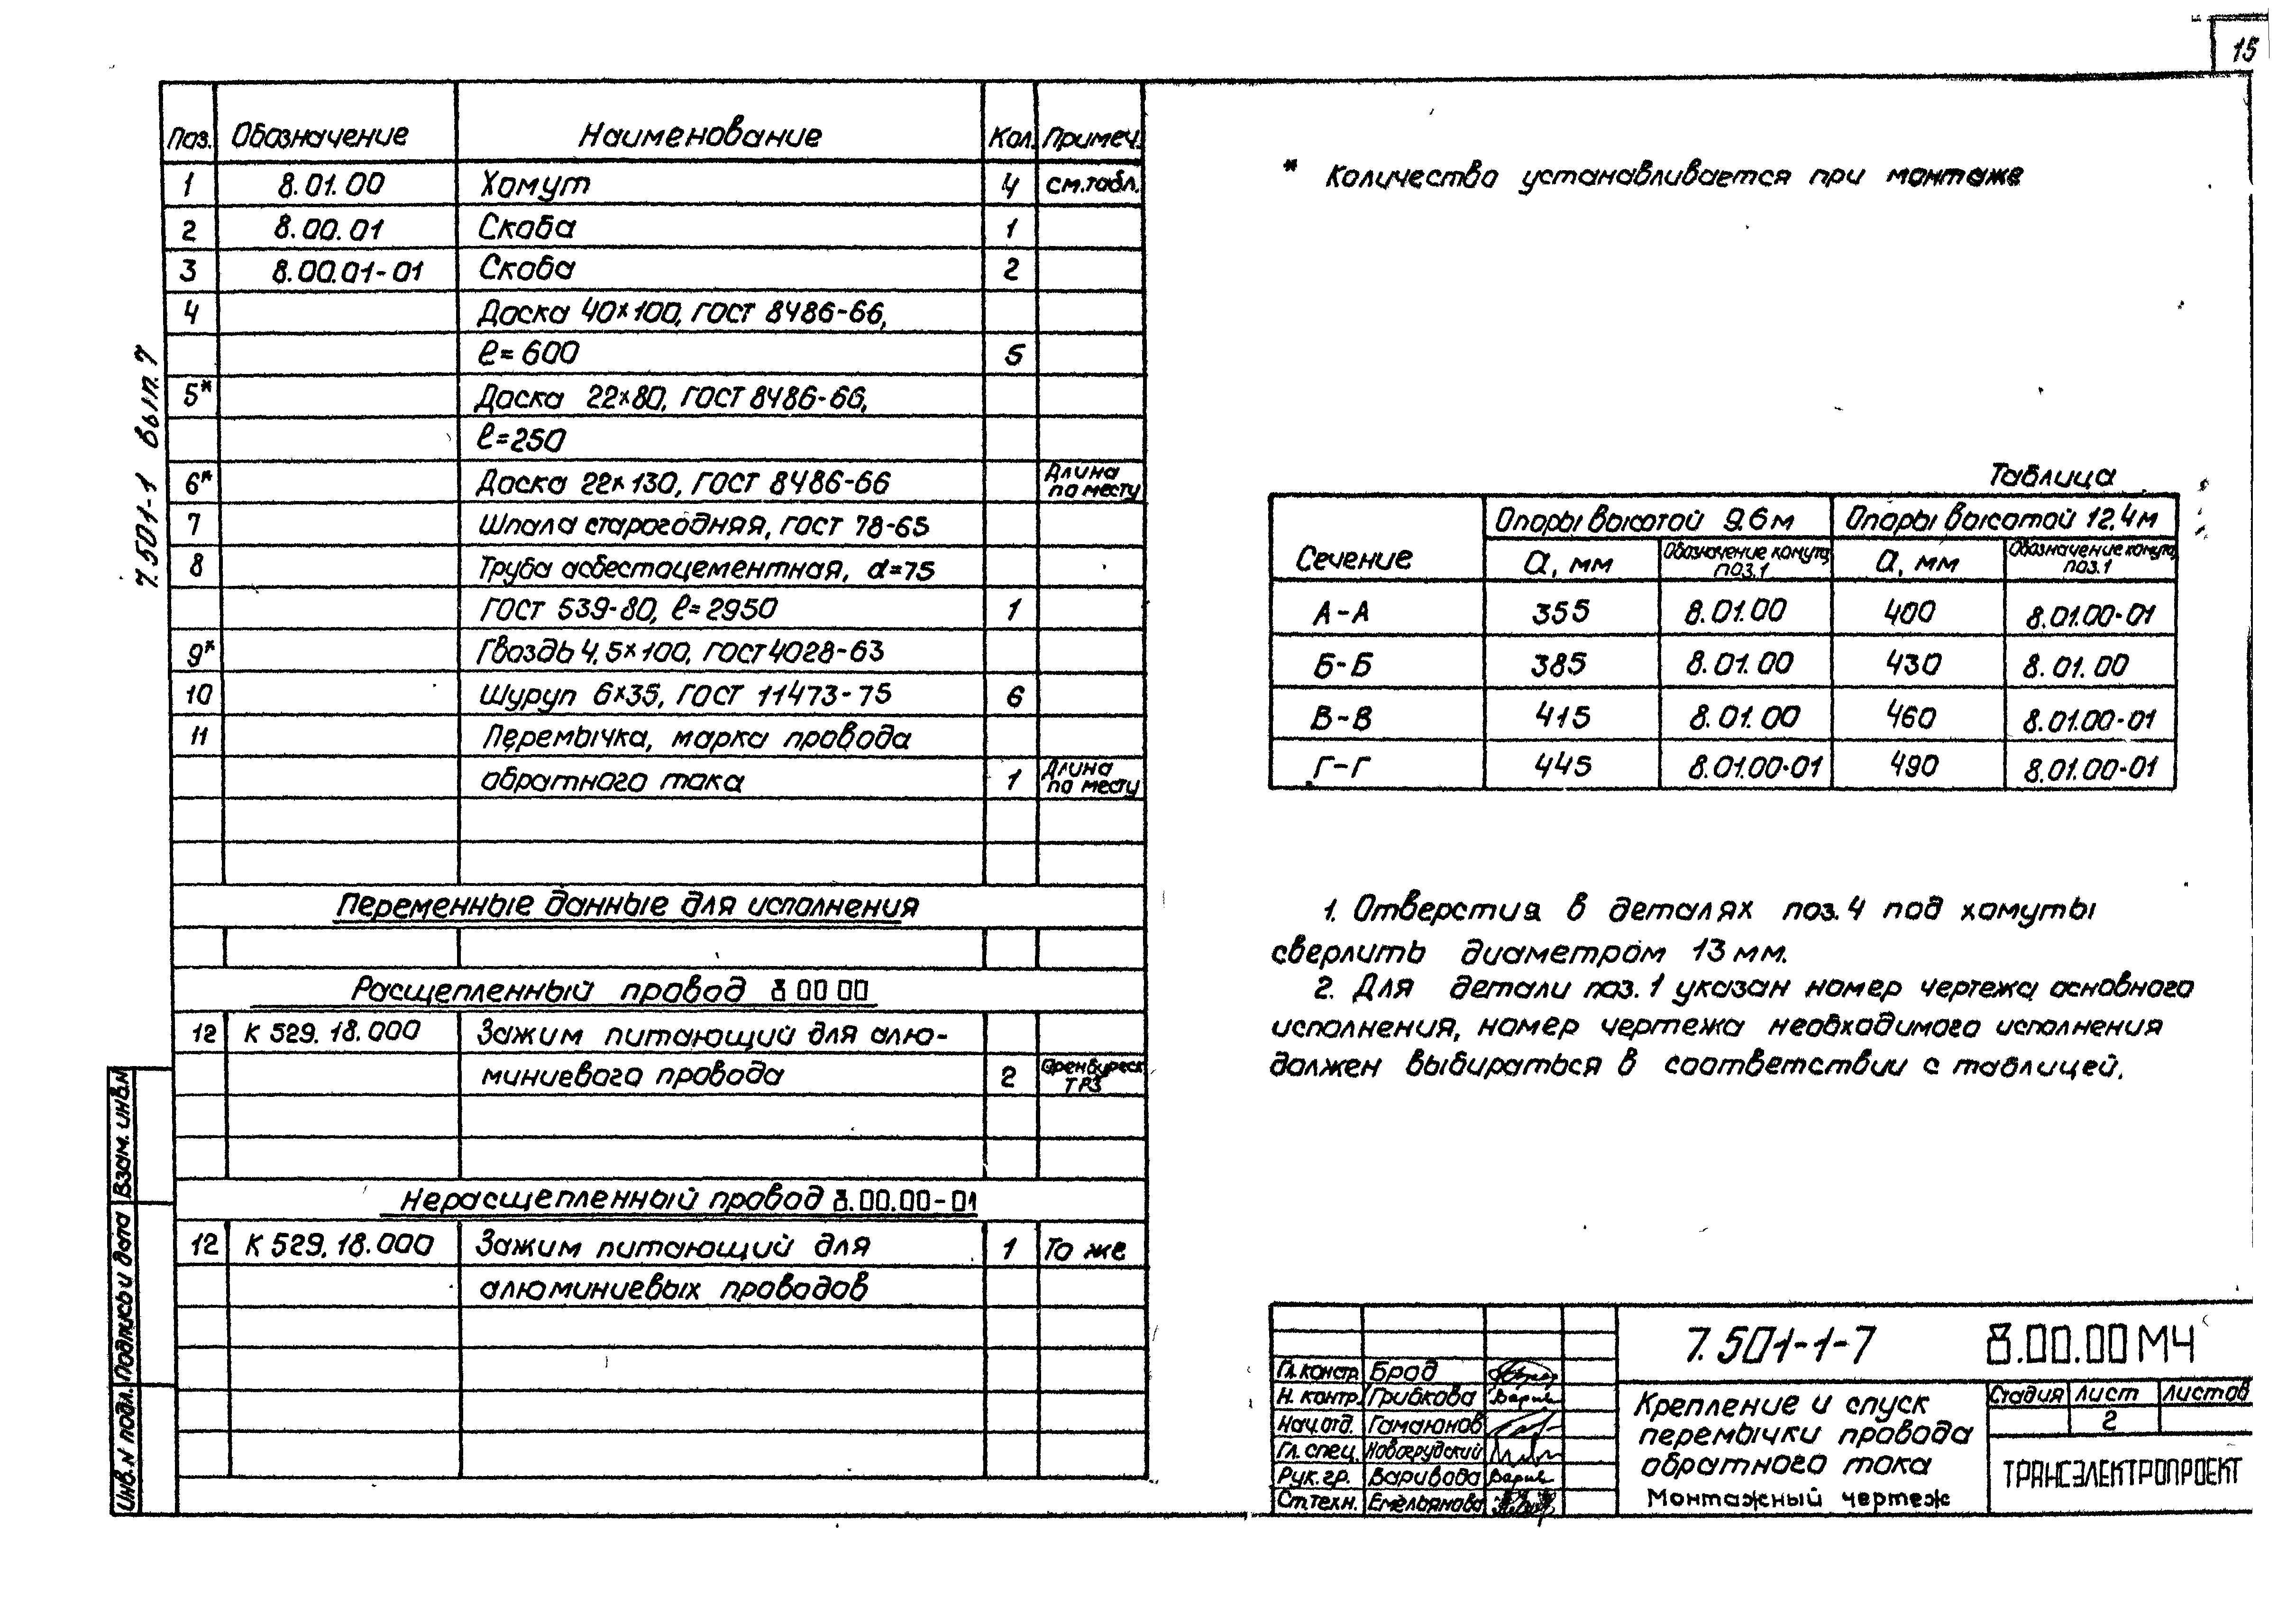 15
7.501-1 вып. 7
Поз. Обозначение Наименование Кол. Примеч.
1 8.01.00 Хомут 4 см.табл.
2 8.00.01 Скоба 1
3 8.00.01-01 Скоба 2
4 Доска 40×100, ГОСТ 8486-66,
ℓ=600 5
5* Доска 22×80, ГОСТ 8486-66,
ℓ=250
6* Доска 22×130, ГОСТ 8486-66 Длина по месту
7 Шпала старогодняя, ГОСТ 78-65
8 Труба асбестоцементная, d=75
ГОСТ 539-80, ℓ=2950 1
9* Гвоздь 4,5×100, ГОСТ 4028-63
10 Шуруп 6×35, ГОСТ 11473-75 6
11 Перемычка, марка провода
обратного тока 1 Длина по месту
Переменные данные для исполнения
Расщепленный провод 8 00 00
12 К 529.18.000 Зажим питающий для алю-
миниевого провода 2 Оренбургск. ТРЗ
Нерасщепленный провод 8.00.00-01
12 К 529.18.000 Зажим питающий для 1 То же
алюминиевых проводов
* Количество устанавливается при монтаже
Таблица
Сечение Опоры высотой 9,6м Опоры высотой 12,4м
а, мм Обозначение хомута, поз.1 а, мм Обозначение хомута, поз.1
А-А 355 8.01.00 400 8.01.00-01
Б-Б 385 8.01.00 430 8.01.00
В-В 415 8.01.00 460 8.01.00-01
Г-Г 445 8.01.00-01 490 8.01.00-01
1. Отверстия в деталях поз.4 под хомуты
сверлить диаметром 13 мм.
2. Для детали поз.1 указан номер чертежа основного
исполнения, номер чертежа необходимого исполнения
должен выбираться в соответствии с таблицей.
Инв.N подл. Подпись и дата Взам. инв.N
7.501-1-7 8.00.00 МЧ
Гл.констр. Брод
Н. контр. Грибкова
Нач.отд. Гамаюнов
Гл. спец. Новогрудский
Рук. гр. Варивода
Ст.техн. Емельянова
Крепление и спуск
перемычки провода
обратного тока
Монтажный чертеж
Стадия Лист Листов
2
ТРАНСЭЛЕКТРОПРОЕКТ